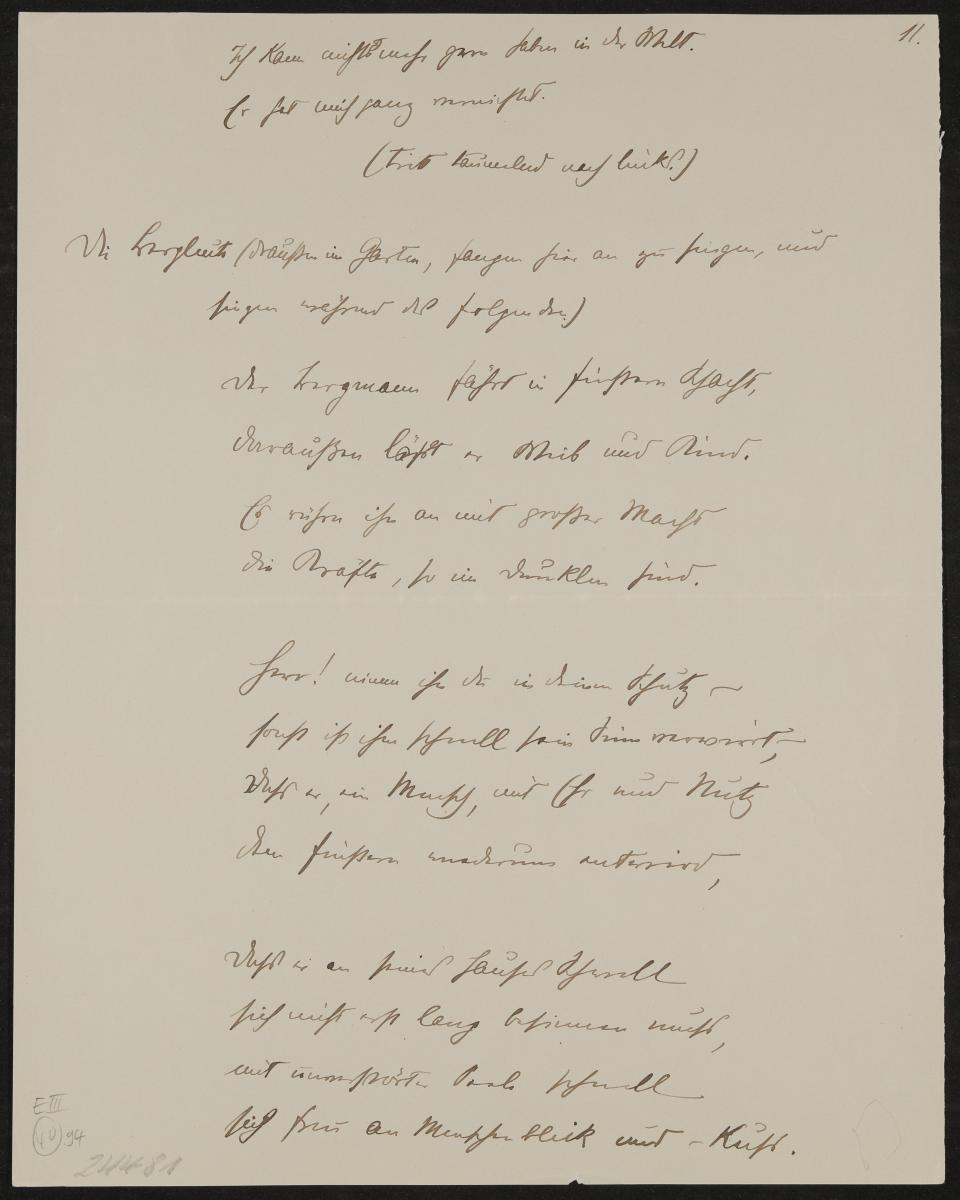 11.
Ich kann nichts mehr gern haben in der Welt.
Er hat mich ganz vernichtet.
(tritt taumelnd nach links.)
Die Bergleute (draußen im Garten, fangen hier an zu singen, und
singen während des folgenden.)
Der Bergmann fährt in finstern Schacht,
daraußen läßt er Weib und Kind.
Es rühren ihn an mit großer Macht
die Kräfte, so im Dunklen sind.
Herr! nimm ihn du in deinen Schutz –
sonst ist ihm schnell sein Sinn verwirrt, –
Dass er, ein Mensch, mit Ehr und Nutz
dem Finstern wiederum entwird,
Dass er an seines Hauses Schwell
sich nicht erst lang besinnen muss,
mit unverstörter Seele schnell
sich freu an Menschenblick und – Kuss.
E III
94
24481